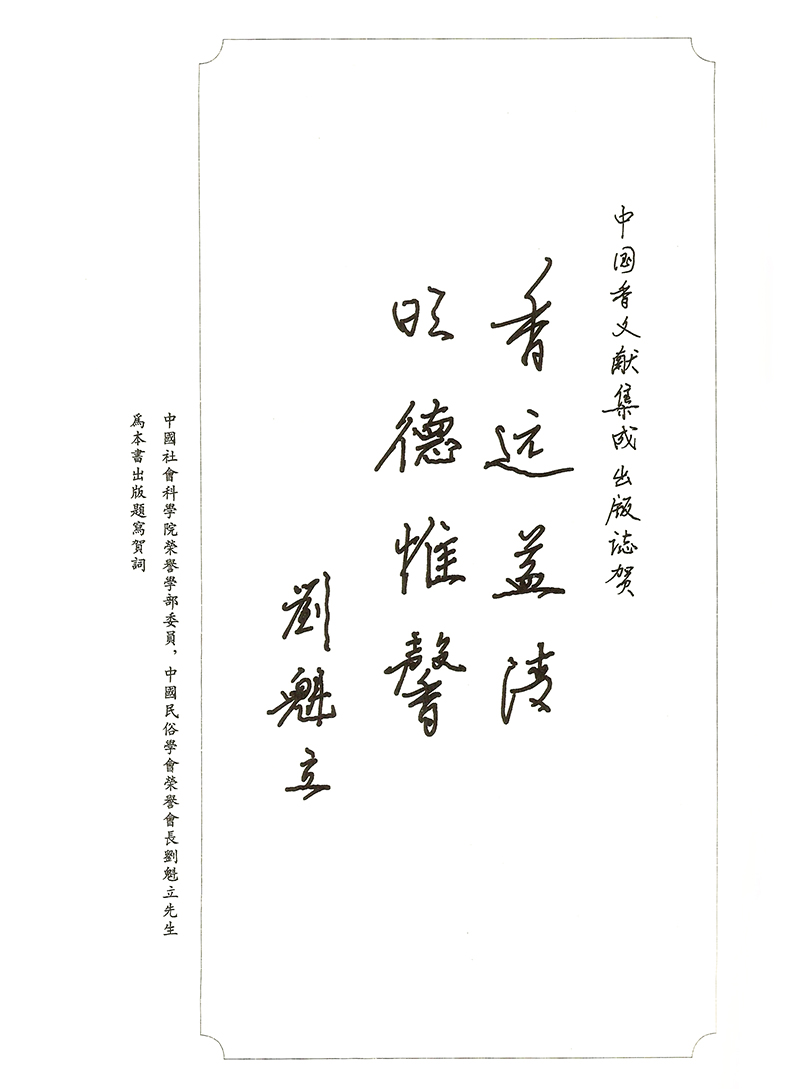 中国香文献集成出版誌贺
香远益清
明德惟馨
劉魁立
中國社會科學院榮譽學部委員，中國民俗學會榮譽會長劉魁立先生
爲本書出版題寫賀詞